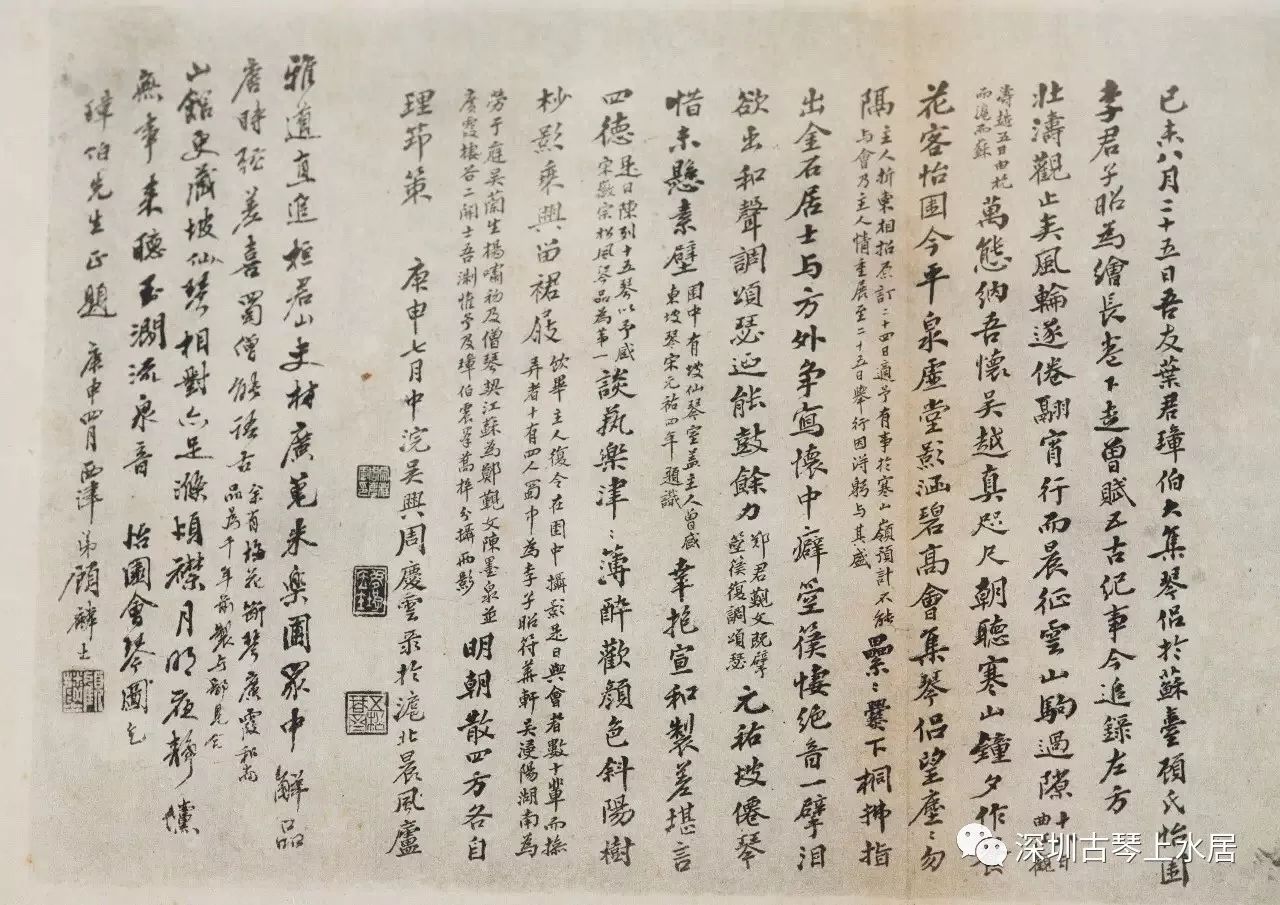 己未八月二十五日吾友葉君璋伯大集琴侶於蘇臺顧氏怡園
李君子昭為繪長卷下走曾賦五古紀事今追錄左方
壯濤觀止矣風輪遂倦翮宵行而晨征雲山駒過隙
濤越五日由杭
而滬而蘇
萬態納吾懷吳越真咫尺朝聽寒山鐘夕作
花客怡園今平泉虛堂影涵碧高會集琴侶望塵〻勿
隔
主人折柬相招原訂二十四日適予有事於寒山嶺預計不能
與會乃主人情重展至二十五日舉行因得躬與其盛
纍〻爨下桐拂指
出金石居士与方外爭寫懷中癖箜篌悽絕音一擘泪
欲出和聲調頌瑟迎能鼓餘力
鄭君覲文既擘
箜篌復調頌瑟
元祐坡僊琴
惜未懸素壁
園中有坡仙琴室蓋主人曾藏
東坡琴宋元祐四年題識
幸抱宣和製差堪言
四德
是日陳列十五琴以予藏
宋徽宗松風琴品為第一
談蓺樂津〻薄醉歡顏色斜陽樹
杪影乘興留裙屐
飲畢主人復令在園中攝影是日與會者數十輩而操
弄者十有四人蜀中為李子昭符華軒吳浸陽湖南為
勞于庭吳蘭生楊嘯初及僧琴契江蘇為鄭覲文陳墨泉並
明朝散四方各自
理筇策
庚申七月中浣吳興周慶雲录於滬北晨風廬
雅道直追桓君山吏材廣蒐来樂園眾中解品
唐時經差喜蜀僧能話古
山館更藏坡仙琴相對亦足滌煩襟月明夜靜
無事来聽玉澗流泉音
怡園會琴圖
璋伯先生正題
庚申四月西津弟顧麟士
深圳古琴上水居